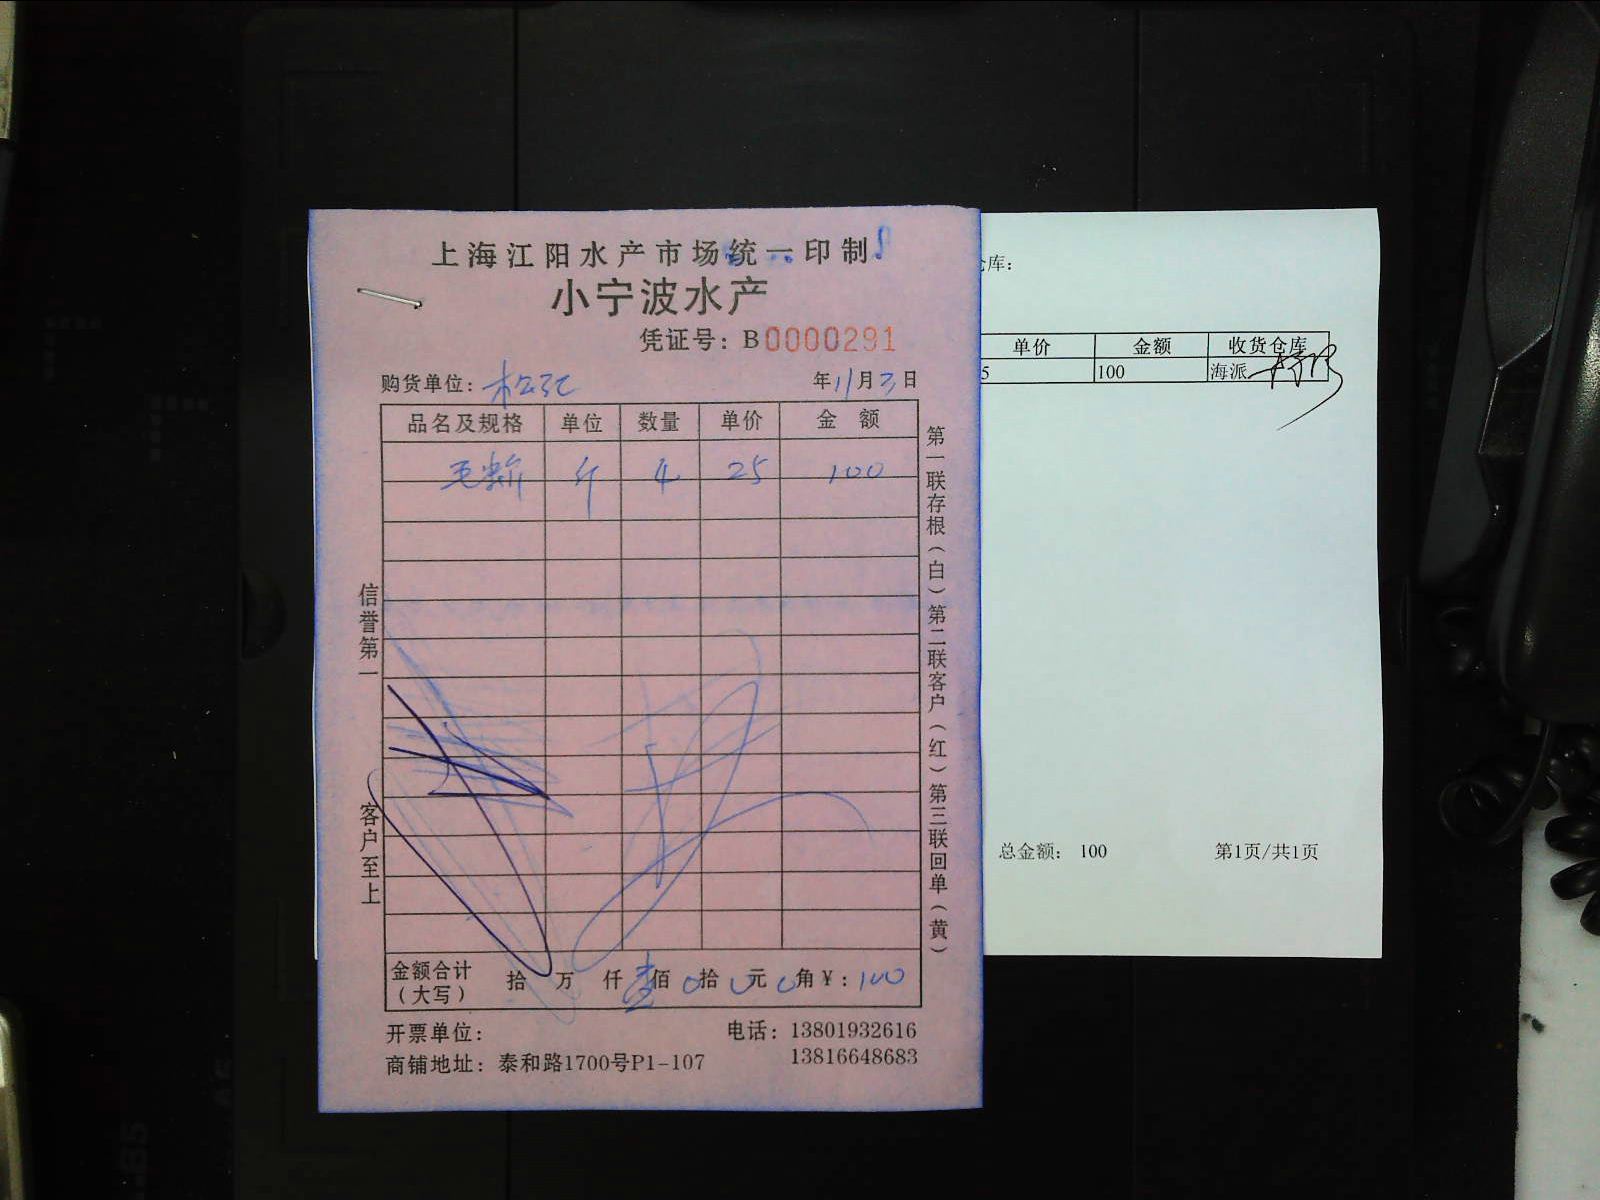 上海江阳水产市场统一印制
小宁波水产
凭证号：B0000291
购货单位：松江 年11月3日
品名及规格 单位 数量 单价 金 额
毛 斤 4 25 100
信誉第一 客户至上
第一联存根（白）第二联客户（红）第三联回单（黄）
金额合计（大写） 拾 万 仟 壹佰 0拾 0元 0角 ¥：100
开票单位： 电话：13801932616
商铺地址：泰和路1700号P1-107 13816648683
库：
单价 金额 收货仓库
5 100 海派
总金额： 100 第1页/共1页